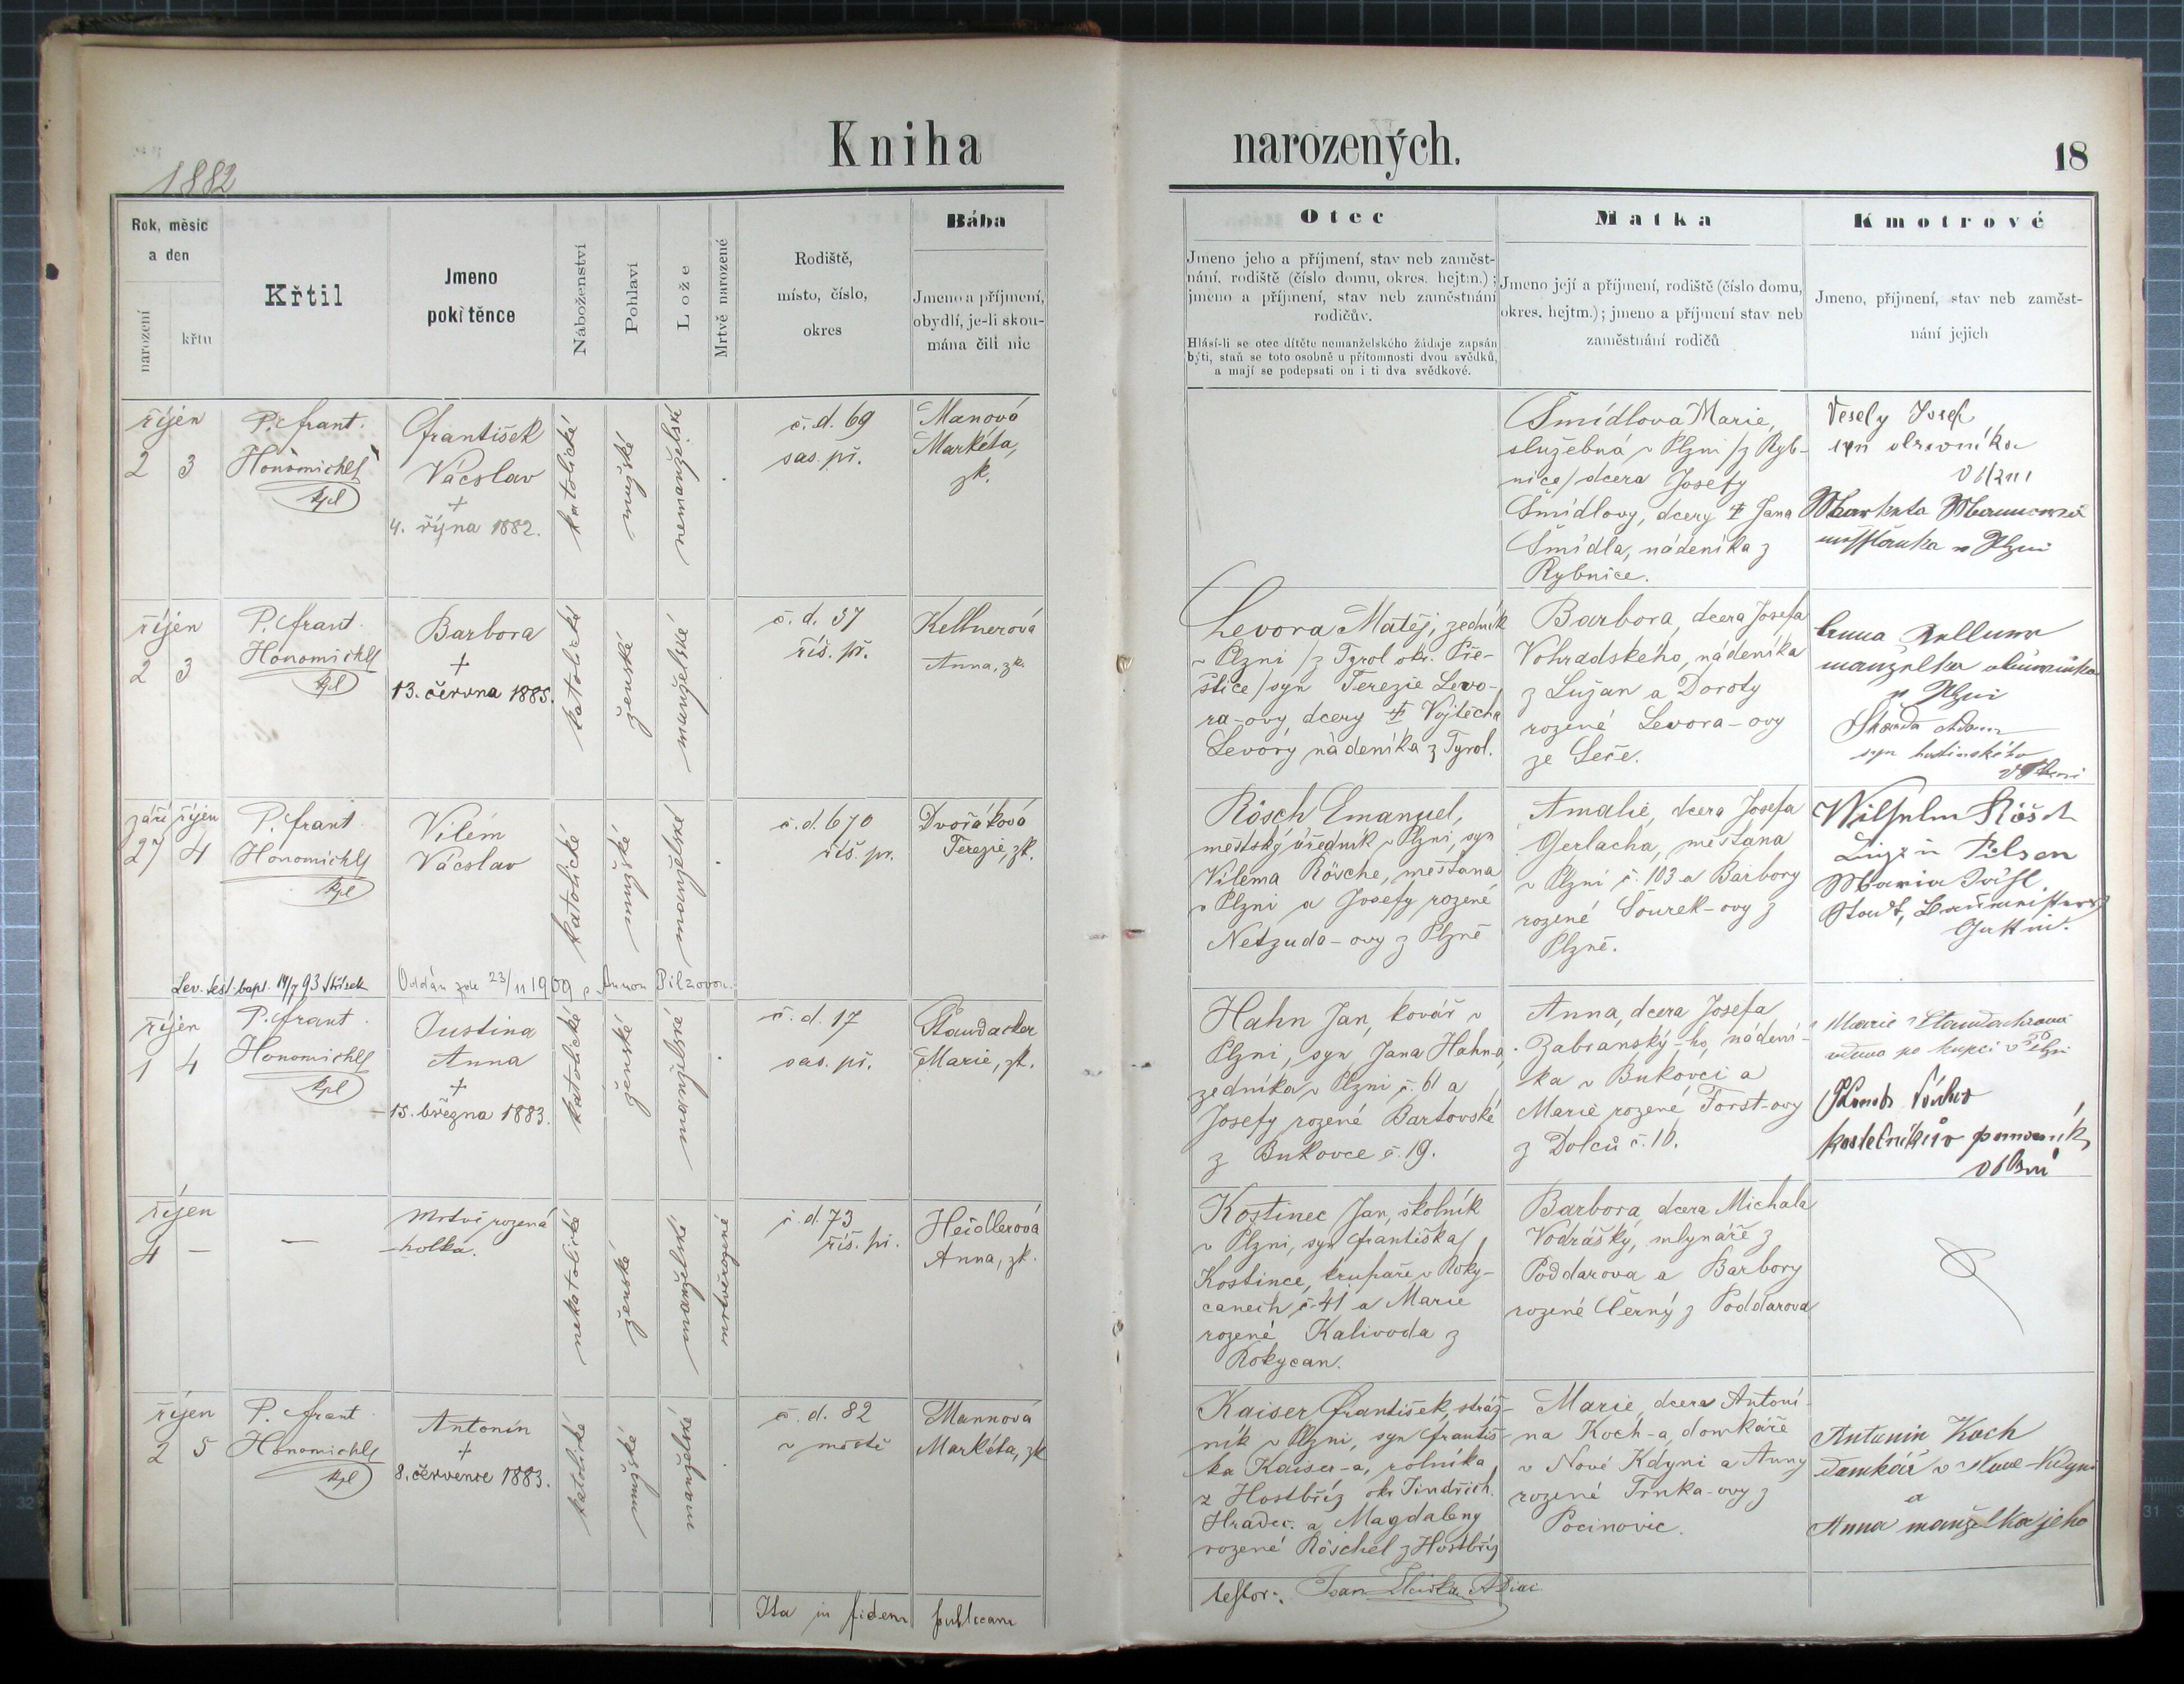 Kniha narozených.
18
1882
Rok, měsíc
a den
narození
křtu
Křtil
Jmeno
pokřtěnce
Náboženství
Pohlaví
Lože
Mrtvě narozené
Rodiště,
místo, číslo,
okres
Bába
Jmeno a příjmení,
obydlí, je-li skou-
mána čili nic
Otec
Jmeno jeho a příjmení, stav neb zaměst-
nání, rodiště (číslo domu, okres. hejtm.);
jméno a příjmení, stav neb zaměstnání
rodičův.
Hlásí-li se otec dítěte nemanželského žádaje zapsán
býti, staň se toto osobně u přítomnosti dvou svědků,
a mají se podepsati on i ti dva svědkové.
Matka
Jmeno její a příjmení, rodiště (číslo domu,
okres. hejtm.); jmeno a příjmení stav neb
zaměstnání rodičů
Kmotrové
Jmeno, příjmení, stav neb zaměst-
nání jejich
říjen
2 3
P. Frant.
Honomichl
kpl
František
Václav
+
4. října 1882.
katolické
mužské
nemanželské
č. d. 69
sas. př.
Manová
Markéta,
zk.
Šmídlova Marie,
služebná v Plzni /z Ryb-
nice/ dcera Josefy
Šmídlovy, dcery † Jana
Šmídla, nádeníka z
Rybnice.
Vesely Josef
syn
v Plzni
Markéta Mannová
v Plzni
říjen
2 3
P. Frant.
Honomichl
kpl
Barbora
+
13. června 1885.
katolické
ženské
manželské
č. d. 37
říš. př.
Kellnerová
Anna, zk.
Levora Matěj, zedník
v Plzni /z Tyrol okr. Pře-
štice/ syn Terezie Levo-
ra-ovy, dcery † Vojtěcha
Levory nádeníka z Tyrol.
Barbora, dcera Josefa
Vohradského, nádeníka
z Lužan a Doroty
rozené Levora-ovy
ze Seče.
Anna Kellner
manželka
v Plzni
Škarda Adam
syn hostinského
v Plzni
září říjen
27 4
P. Frant.
Honomichl
kpl
Vilém
Václav
katolické
mužské
manželské
č. d. 670
říš. př.
Dvořáková
Terezie, zk.
Rösch Emanuel,
městský úředník v Plzni, syn
Viléma Rösche, měšťana
v Plzni a Josefy rozené
Netzuda-ovy z Plzně
Amalie, dcera Josefa
Gerlacha, měšťana
v Plzni č. 103 a Barbory
rozené Šourek-ovy z
Plzně.
Wilhelm Rösch
in Pilsen
Maria
Gattin.
Lev. test. bapt. 14/7 93
Oddán zde 23/11 1909 s Annou Pilzovou.
říjen
1 4
P. Frant.
Honomichl
kpl
Justina
Anna
+
15. března 1883.
katolické
ženské
manželské
č. d. 17
sas. př.
Štandacher
Marie, zk.
Hahn Jan, kovář v
Plzni, syn Jana Hahn-a,
zedníka v Plzni č. 61 a
Josefy rozené Bartovské
z Bukovce č. 19.
Anna, dcera Josefa
Zabranský-ho, nádení-
ka v Bukovci a
Marie rozené Forst-ovy
z Dolců č. 10.
Marie Standachrová
vdova po kupci v Plzni
kostelníkův pomocník
v Plzni
říjen
4 –
—
Mrtvě rozená
holka.
nekatolické
ženské
manželské
mrtvě rozené
č. d. 73
říš. př.
Heidlerová
Anna, zk.
Kostinec Jan, školník
v Plzni, syn Františka
Kostince, krupaře v Roky-
canech č. 41 a Marie
rozené Kalivoda z
Rokycan.
Barbora, dcera Michala
Vodrážky, mlynáře z
Poddarova a Barbory
rozené Černý z Poddarova
říjen
2 5
P. Frant.
Honomichl
kpl
Antonín
+
8. července 1883.
katolické
mužské
manželské
č. d. 82
v městě
Mannová
Markéta, zk.
Kaiser František, stráž-
ník v Plzni, syn Františ-
ka Kaiser-a, rolníka
z Hostbříz okr. Jindřich.
Hradec. a Magdaleny
rozené Röschel z Hostbříz
Marie, dcera Antoní-
na Koch-a, domkáře
v Nové Kdyni a Anny
rozené Trnka-ovy z
Pocinovic.
Antonin Koch
domkář v Nové Kdyni
a
Anna manželka jeho
Ita in fidem publicam
testor: